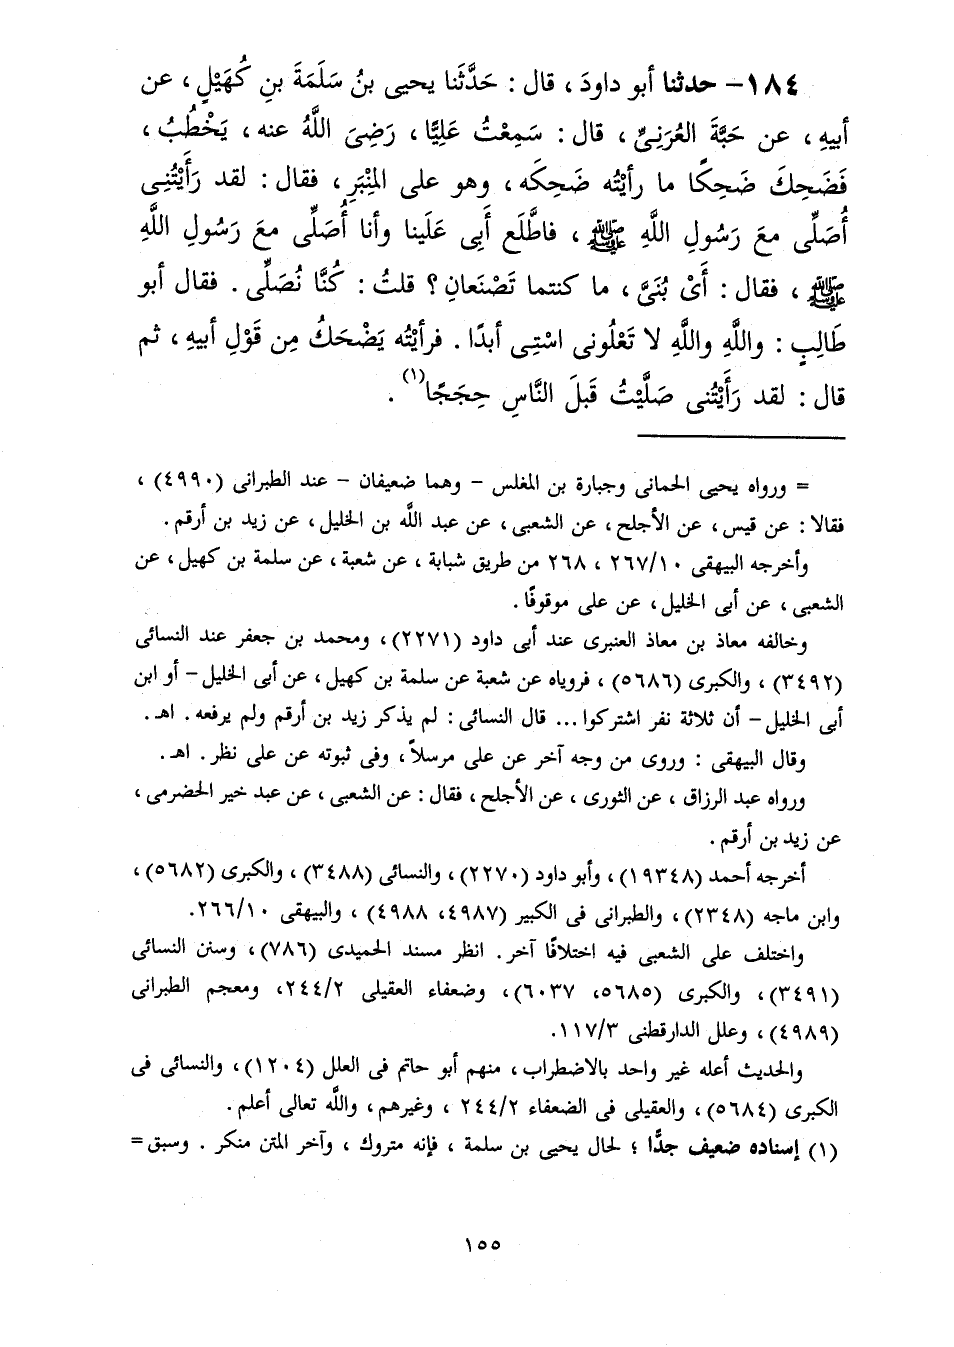 ١٨٤- حدثنا أبو داودَ ، قال : حَدَّثَنا يحيى بنُ سَلَمَةَ بنِ كُهَيْلٍ ، عن
أبيهِ ، عن حَبَّةَ العُرَنِىِّ ، قال : سَمِعْتُ عَلِيًّا ، رَضِىَ اللَّهُ عنه ، يَخْطُبُ ،
فَضَحِكَ ضَحِكًا ما رأيْتُه ضَحِكَه ، وهو على المِنْبَرِ ، فقال : لقد رَأَيْتُنِى
أُصَلِّى معَ رَسُولِ اللَّهِ ﷺ ، فاطَّلَع أَبِى عَلَينا وأنا أُصَلِّى معَ رَسُولِ اللَّهِ
ﷺ ، فقال : أَىْ بُنَىَّ ، ما كنتما تَصْنَعانِ ؟ قلتُ : كُنَّا نُصَلِّى . فقال أبو
طَالِبٍ : واللَّهِ واللَّهِ لا تَعْلُونى اسْتِى أبدًا . فرأيْتُه يَضْحَكُ مِن قَوْلِ أبيهِ ، ثم
قال : لقد رَأَيْتُنى صَلَّيْتُ قَبلَ النَّاسِ حِجَجًا(١) .
= ورواه يحيى الحمانى وجبارة بن المغلس - وهما ضعيفان - عند الطبرانى (٤٩٩٠) ،
فقالا : عن قيس ، عن الأجلح ، عن الشعبى ، عن عبد اللَّه بن الخليل ، عن زيد بن أرقم .
وأخرجه البيهقى ٢٦٧/١٠ ، ٢٦٨ من طريق شبابة ، عن شعبة ، عن سلمة بن كهيل ، عن
الشعبى ، عن أبى الخليل ، عن على موقوفًا .
وخالفه معاذ بن معاذ العنبرى عند أبى داود (٢٢٧١) ، ومحمد بن جعفر عند النسائى
(٣٤٩٢) ، والكبرى (٥٦٨٦) ، فروياه عن شعبة عن سلمة بن كهيل ، عن أبى الخليل - أو ابن
أبى الخليل - أن ثلاثة نفر اشتركوا ... قال النسائى : لم يذكر زيد بن أرقم ولم يرفعه . اهـ .
وقال البيهقى : وروى من وجه آخر عن على مرسلاً ، وفى ثبوته عن على نظر . اهـ .
ورواه عبد الرزاق ، عن الثورى ، عن الأجلح ، فقال : عن الشعبى ، عن عبد خير الحضرمى ،
عن زيد بن أرقم .
أخرجه أحمد (١٩٣٤٨) ، وأبو داود (٢٢٧٠) ، والنسائى (٣٤٨٨) ، والكبرى (٥٦٨٢) ،
وابن ماجه (٢٣٤٨) ، والطبرانى فى الكبير (٤٩٨٧، ٤٩٨٨) ، والبيهقى ٢٦٦/١٠.
واختلف على الشعبى فيه اختلافًا آخر . انظر مسند الحميدى (٧٨٦) ، وسنن النسائى
(٣٤٩١) ، والكبرى (٥٦٨٥، ٦٠٣٧) ، وضعفاء العقيلى ٢٤٤/٢، ومعجم الطبرانى
(٤٩٨٩) ، وعلل الدارقطنى ١١٧/٣.
والحديث أعله غير واحد بالاضطراب ، منهم أبو حاتم فى العلل (١٢٠٤) ، والنسائى فى
الكبرى (٥٦٨٤) ، والعقيلى فى الضعفاء ٢٤٤/٢ ، وغيرهم ، واللَّه تعالى أعلم .
(١) إسناده ضعيف جدًّا ؛ لحال يحيى بن سلمة ، فإنه متروك ، وآخر المتن منكر . وسبق =
١٥٥